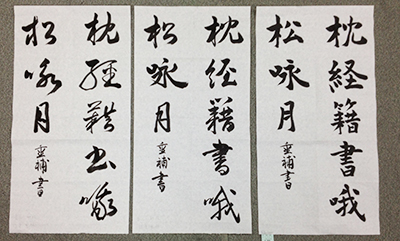 枕経籍書哦
松咏月
補書
枕経籍書哦
松咏月
補書
枕經籍書
松咏月
補書